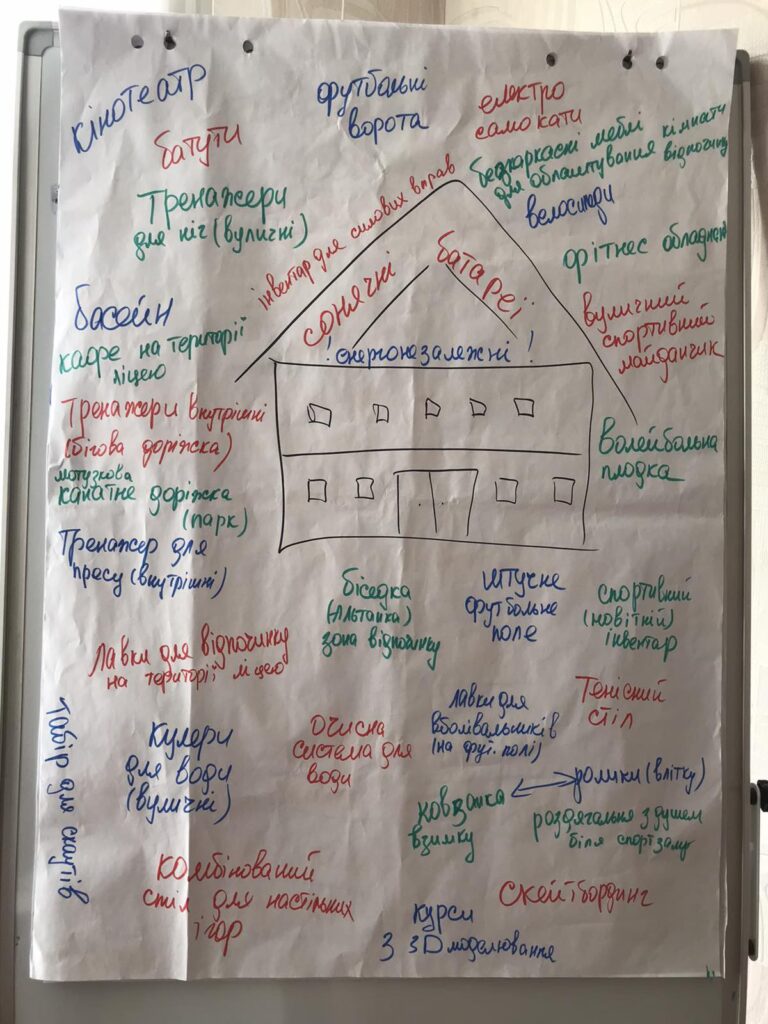 кінотеатр
футбольні
ворота
електро
самокати
батути
безкаркасні меблі кімнати
для облаштування відпочинку
велосипеди
Тренажери
для ніг (вуличні)
інвентар для силових вправ
фітнес обладнання
сонячні батареї
! енергоназалежні !
басейн
вуличний
спортивний
майданчик
кафе на території
ліцею
Тренажери внутрішні
(бігова доріжка)
Волейбольна
плодка
мотузкова
канатне доріжка
(парк)
Тренажер для
пресу (внутрішні)
бісєдка
(Альтанка)
зона відпочинку
штучне
футбольне
поле
спортивний
(новітній)
інвентар
Лавки для відпочинку
на території ліцею
Тенісний
стіл
лавки для
вболівальників
(на фут. полі)
Табір для скаутів
Кулери
для води
(вуличні)
Очисна
система для
води
ролики (влітку)
ковзанка
взимку
роздягальня з душем
біля спортзалу
комбінований
стіл для настільних
ігор
скейтбординг
курси
з 3D моделювання